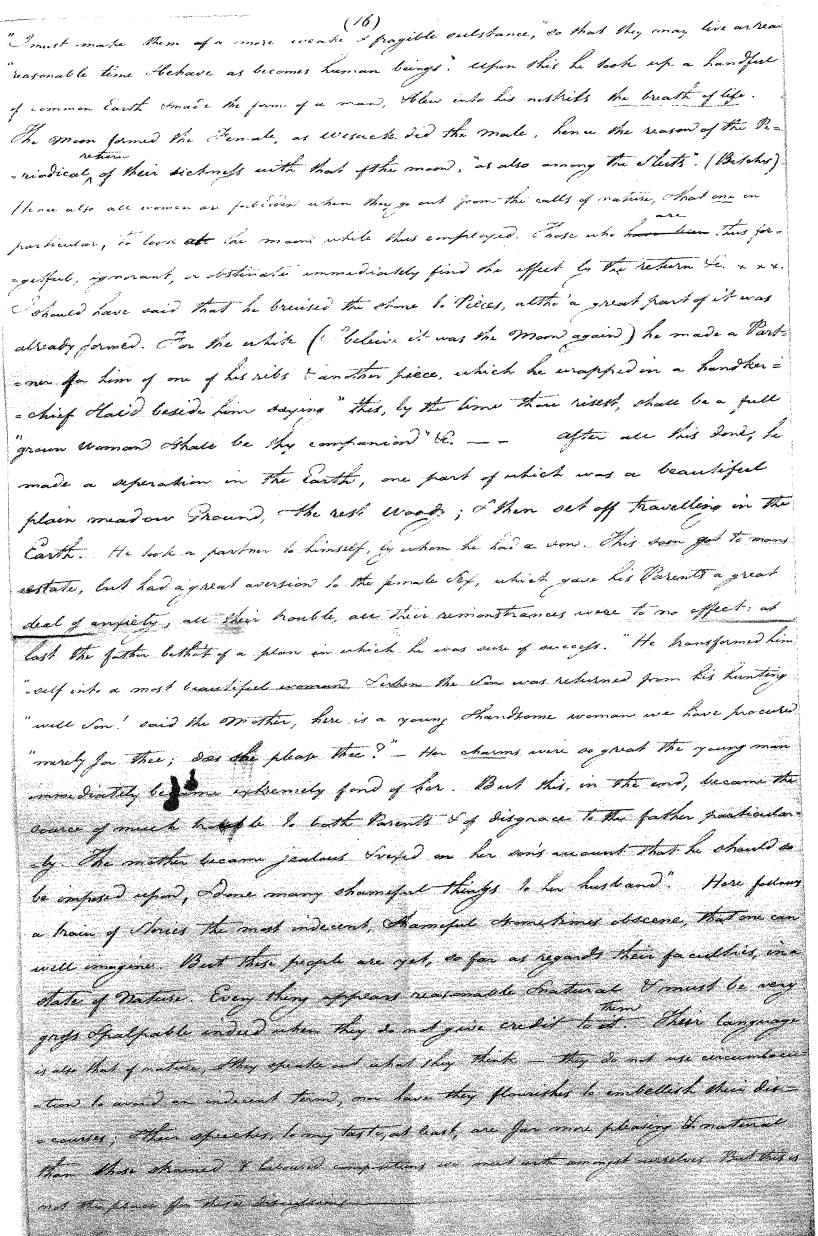 (16)
"I must make them of a more weake & fragible substance," so that they may live a rea-
"reasonable time & behave as becomes human beings". Upon this he took up a handful
of common Earth & made the form of a man, & blew into his nostrils the breath of life.
The Moon formed the Female, as Wesuck did the male, hence the reason of the Pe=
return
=riodical ‸ of their sickness with that of the moon, "as also among the Sluts". (Bitches)
Hence also all women are forbiden when they go out from the calls of nature, & that one in
are
particular, to look at the moon while thus employed. Those who have been thus for=
=getful, ignorant, or obstinate immediately find the effect by the return &c. x x x.
I should have said that he bruised the stone to Pieces, altho' a great part of it was
already formed. For the white (I beleive it was the Moon again) he made a Part=
=ner for him of one of his ribs & another piece, which he wrapped in a handker=
=chief & laid beside him saying "this, by the time thou risest, shall be a full
"grown woman & shall be thy companion" &c. — — After all this done, he
made a seperation in the Earth, one part of which was a beautiful
plain meadow Ground, & the rest Woods; & then set off travelling in the
Earth. He took a partner to himself, by whom he had a son. This soon got to mans
estate, but had a great aversion to the female Sex, which gave his Parents a great
deal of anxiety; all their trouble, all their remonstrances were to no effect: at
last the father betho't of a plan in which he was sure of success. "He transformed him
"-self into a most beautiful woman & when the Son was returned from his hunting
"well Son! said the Mother, here is a young & handsome woman we have procured
"merely for thee; does she please thee?" — Her charms were so great the young man
immediately became extremely fond of her. But this, in the end, became the
source of much trouble to both Parents & of disgrace to the father particular=
=ly. The mother became jealous & vexed on her son's account that he should so
be imposed upon, & done many shameful things to her husband". Here follows
a train of Stories the most indecent, shameful & sometimes obscene, that one can
well imagine. But these people are yet, so far as regards their faculties, in a
state of Nature. Every thing appears reasonable & natural & must be very
them
gross & palpable indeed when they do not give credit to it. Their language
is also that of nature, & they speake out what they think — they do not use circumlocu=
=tion to avoid an indecent term, nor have they flourishes to embellish their dis=
=courses; & their speeches, to my taste, at least, are far more pleasing & natural
than those strained & laboured compositions we meet with amongst ourselves. But this is
not the place for these discussions